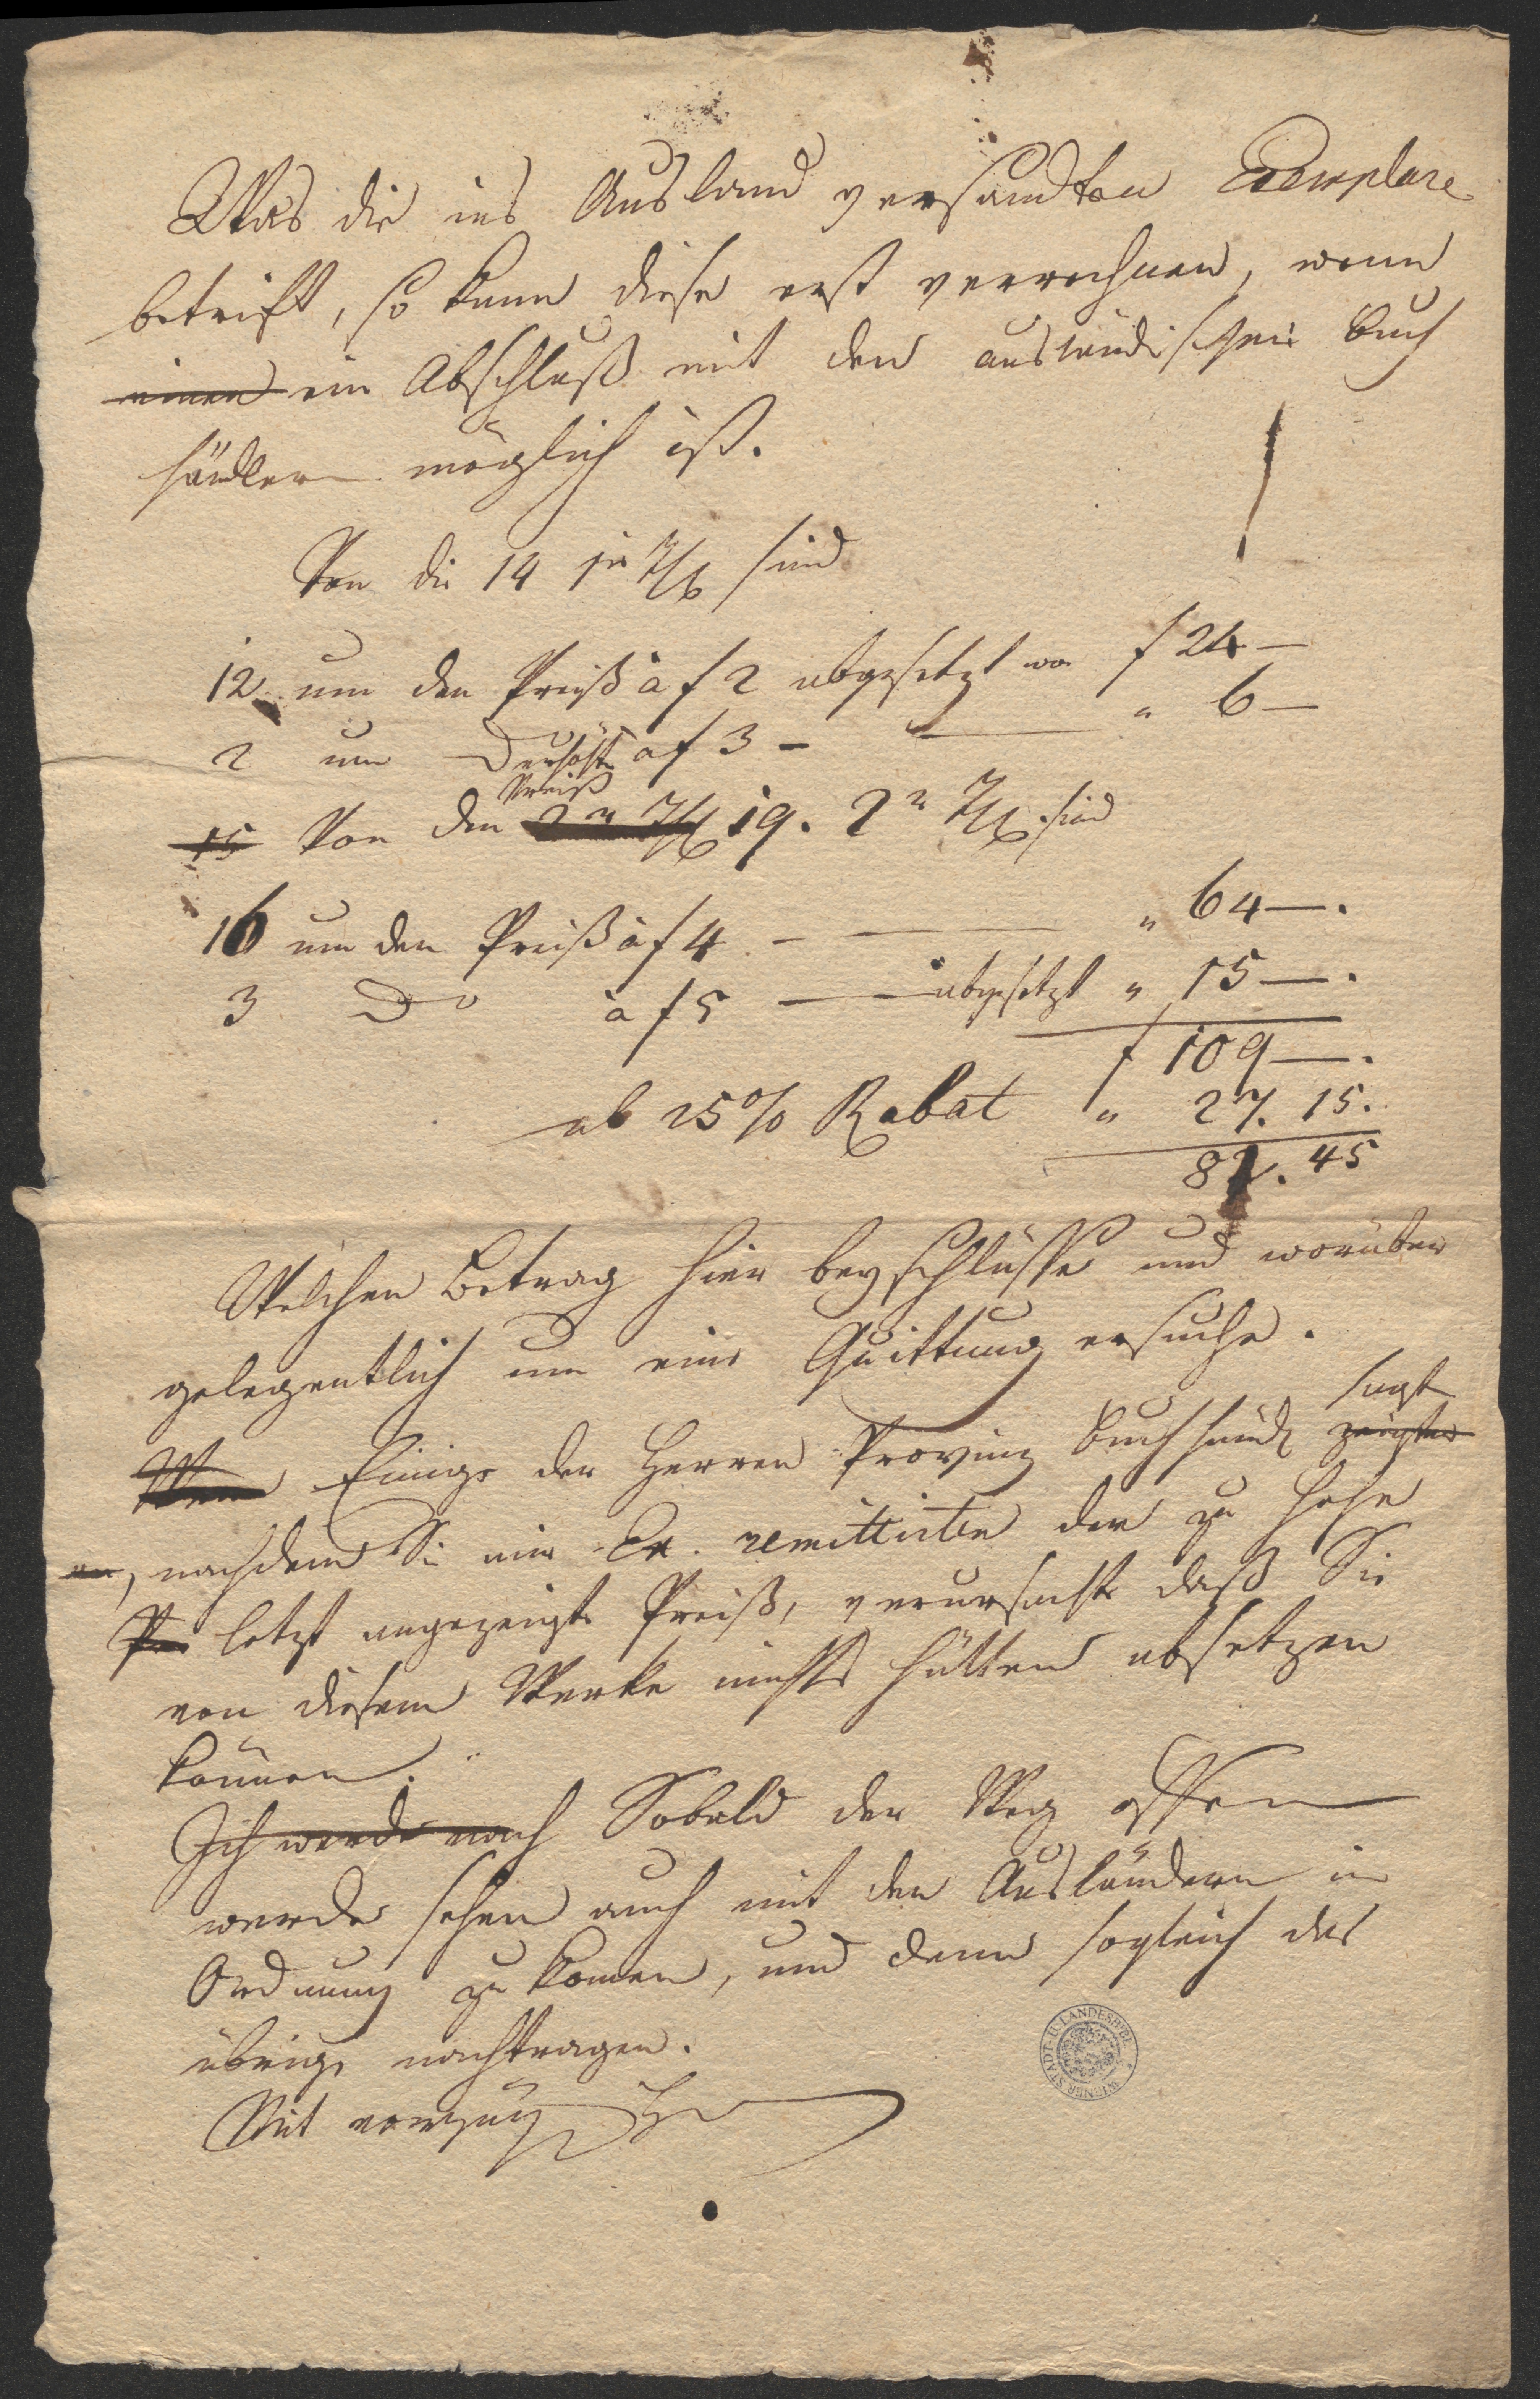 Was die ins Ausland versandten Exemplare
betrift, so kann diese erst verrechnen, wenn
einen ein Abschluß mit den ausländischen Buch
händlern möglich ist.
Von die 14 sind
12 um den Preiß à f 2 abgesetzt f 24 —
2 um Do erhöht à f 3 — — " 6 —
Preiß
15 Von den 19. 2n sind
16 um den Preiß à f 4 — — " 64 —.
3 Do à f 5 — — abgesetzt " 15 —.
f 109 —.
ab 25% Rabat " 27. 15.
81. 45
Welchen Betrag hier beyschlüsse und worüber
gelegentlich um eine Quittung ersuche.
sagt
Einige der Herren Provinz Buchhändl zeigten
en, nachdem Sie mir Ex. remittirten der zu hohe
Pr letzt angezeigte Preiß, verursachte daß Sie
von diesem Werke nichts hätten absetzen
können.
Ich werde nach Sobald der Weg offen
werde sehen auch mit den Ausländern in
Ordnung zu komen, und dann sogleich das
übrige nachtragen.
Mit vorzug
WIENER STADT- U. LANDESBIBL.